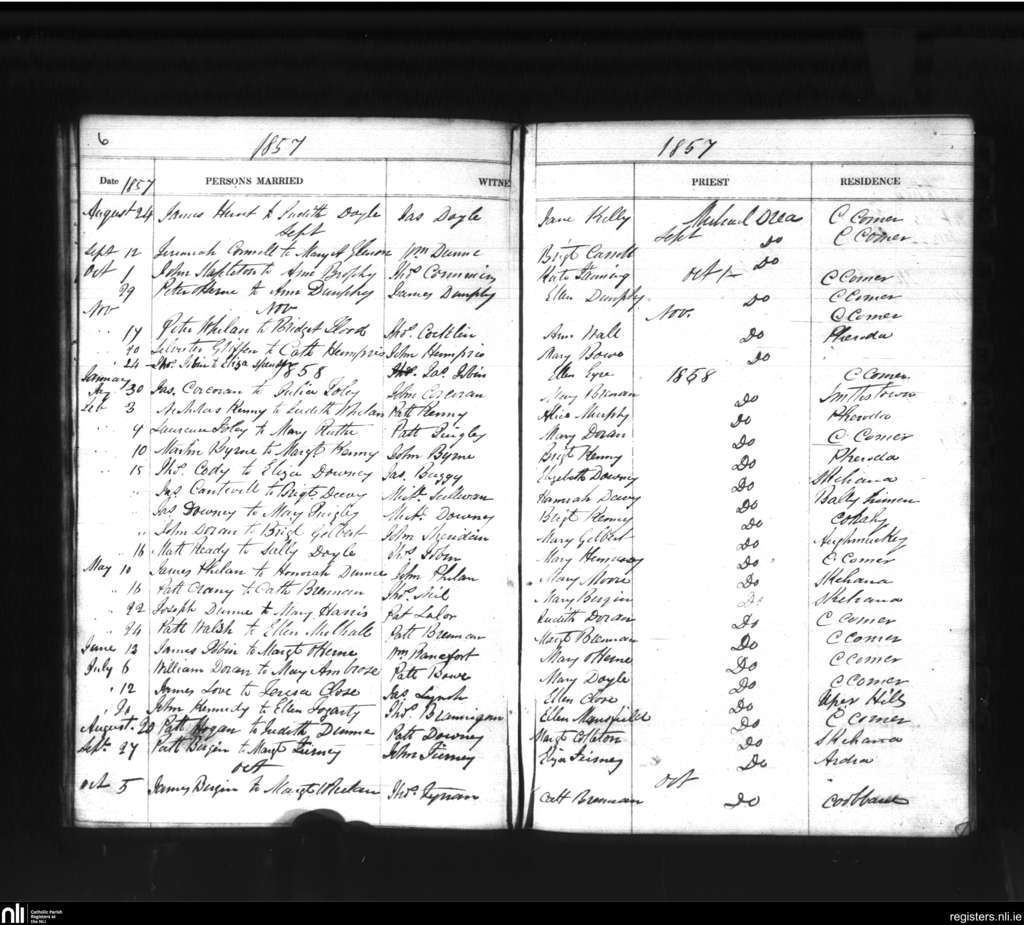 6
1857
1857
Date 1857 PERSONS MARRIED WITNE PRIEST RESIDENCE
August 24 James Hunt to Judith Doyle Jas Doyle Jane Kelly Michael Drea C Comer
Sept Sept Do C Comer
Sept 12 Jeremiah Connell to Mary A Wm Dunne Brigt Carroll Do
Oct 1 John Stapleton to Ann Brophy Thos Commins Kate Oct 1 C Comer
29 Peter to Ann Dunphy James Dunphy Ellen Dunphy Do C Comer
Nov Nov Nov. C Comer
17 Peter Whelan to Bridget Flood Thos Coughlin Ann Wall Do Pheroda
20 Silvester Griffen to Cath Hempris John Hempris Mary Bowe Do
24 Thos Tobin to Eliza Spender Jas Tobin Ellen Eyre C Comer
January 1858 1858
30 Jas. Corcoran to Julia Foley John Corcoran Mary Brenan Do Smithstown
Feb 3 Nicholas Kenny to Judith Whelan Patt Kenny Alice Murphy Do Pheroda
9 Laurence Foley to Mary Ruthe Patt Quigley Mary Doran Do C Comer
10 Martin Byrne to Margt Kenny John Byrne Brigt Kenny Do Pheroda
15 Thos Cody to Eliza Downey Jas. Buggy Elizabeth Downey Do Skehana
Jas Cantwell to Brigt. Deevy Michl Sullivan Hannah Deevy Do
Jas Downey to Mary Quigley Michl Downey Brigt Kenny Do
John Doran to Brigt Gilbert John Sheridan Mary Gilbert Do
16 Matt Ready to Sally Doyle Thos Tobin Mary Hennessy Do C Comer
May 10 James Phelan to Honorah Dunne John Phelan Mary Moore Do Skehana
16 Patt to Cath Brennan Thos Neil Mary Bergin Do Skehana
22 Joseph Dunne to Mary Harris Pat Lalor Judith Doran Do C Comer
24 Patt Walsh to Ellen Mulhall Patt Brennan Margt Brennan Do C Comer
June 13 James Tobin to Margt Wm Ranefort Mary Do C Comer
July 6 William Doran to Mary Ambrose Patt Bowe Mary Doyle Do C Comer
12 James Love to Teresa Close Jas Lynch Ellen Close Do Uper Hills
20 John Kennedy to Ellen Fogarty Thos Brannigan Ellen Mansfield Do C Comer
August. 20 Patt Hogan to Judith Dunne Patt Downey Margt Do Skehana
Sept. 27 Patt Bergin to Margt Tierney John Tierney Eliza Do Ardra
Oct Oct
Oct 5 James Bergin to Margt Whelan Thos Tynan Catt Brennan Do Coolbaun
nli
Catholic Parish
Registers at
the NLI
registers.nli.ie